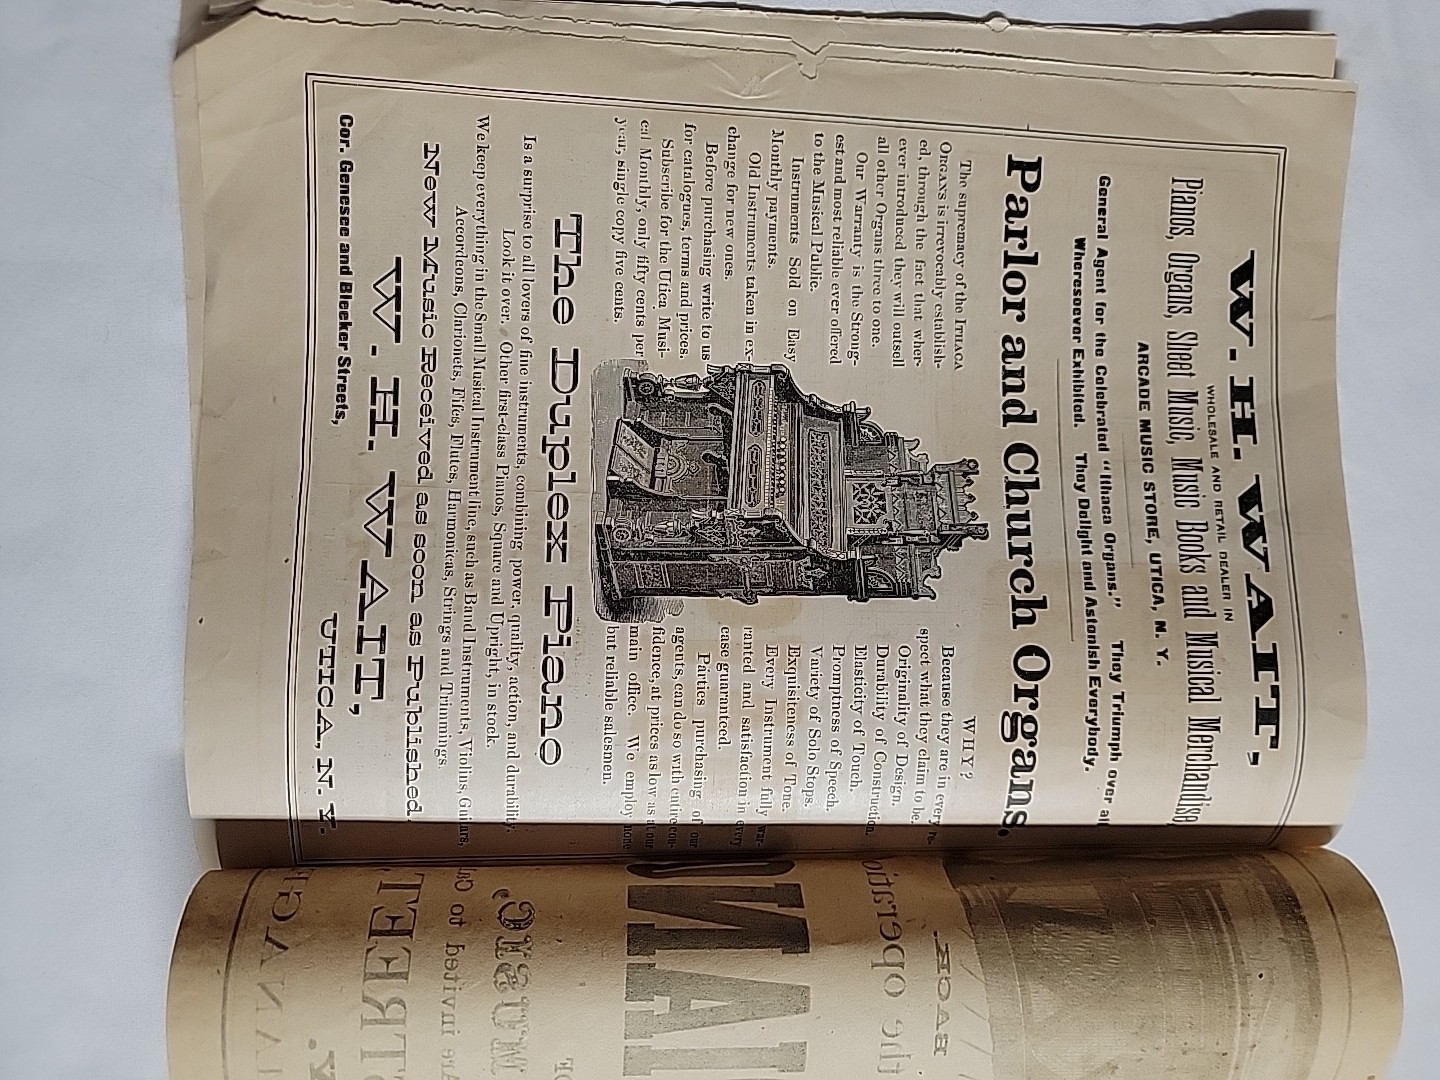 W. H. WAIT,
WHOLESALE AND RETAIL DEALER IN
Pianos, Organs, Sheet Music, Music Books and Musical Merchandise,
ARCADE MUSIC STORE, UTICA, N. Y.
General Agent for the Celebrated "Ithaca Organs." They Triumph over all
Wheresoever Exhibited. They Delight and Astonish Everybody.
Parlor and Church Organs.
The supremacy of the ITHACA
ORGANS is irrevocably establish-
ed, through the fact that wher-
ever introduced they will outsell
all other Organs three to one.
Our Warranty is the Strong-
est and most reliable ever offered
to the Musical Public.
Instruments Sold on Easy
Monthly payments.
Old Instruments taken in ex-
change for new ones.
Before purchasing write to us
for catalogues, terms and prices.
Subscribe for the Utica Musi-
cal Monthly, only fifty cents per
year, single copy five cents.
WHY?
Because they are in every re-
spect what they claim to be.
Originality of Design.
Durability of Construction.
Elasticity of Touch.
Promptness of Speech.
Variety of Solo Stops.
Exquisiteness of Tone.
Every Instrument fully war-
ranted and satisfaction in every
case guaranteed.
Parties purchasing of our
agents, can do so with entire con-
fidence, at prices as low as at our
main office. We employ none
but reliable salesmen.
The Duplex Piano
Is a surprise to all lovers of fine instruments, combining power, quality, action, and durability.
Look it over. Other first-class Pianos, Square and Upright, in stock.
We keep everything in the Small Musical Instrument line, such as Band Instruments, Violins, Guitars,
Accordeons, Clarionets, Fifes, Flutes, Harmonicas, Strings and Trimmings.
New Music Received as soon as Published.
W. H. WAIT,
Cor. Genesee and Bleeker Streets,
UTICA, N. Y.